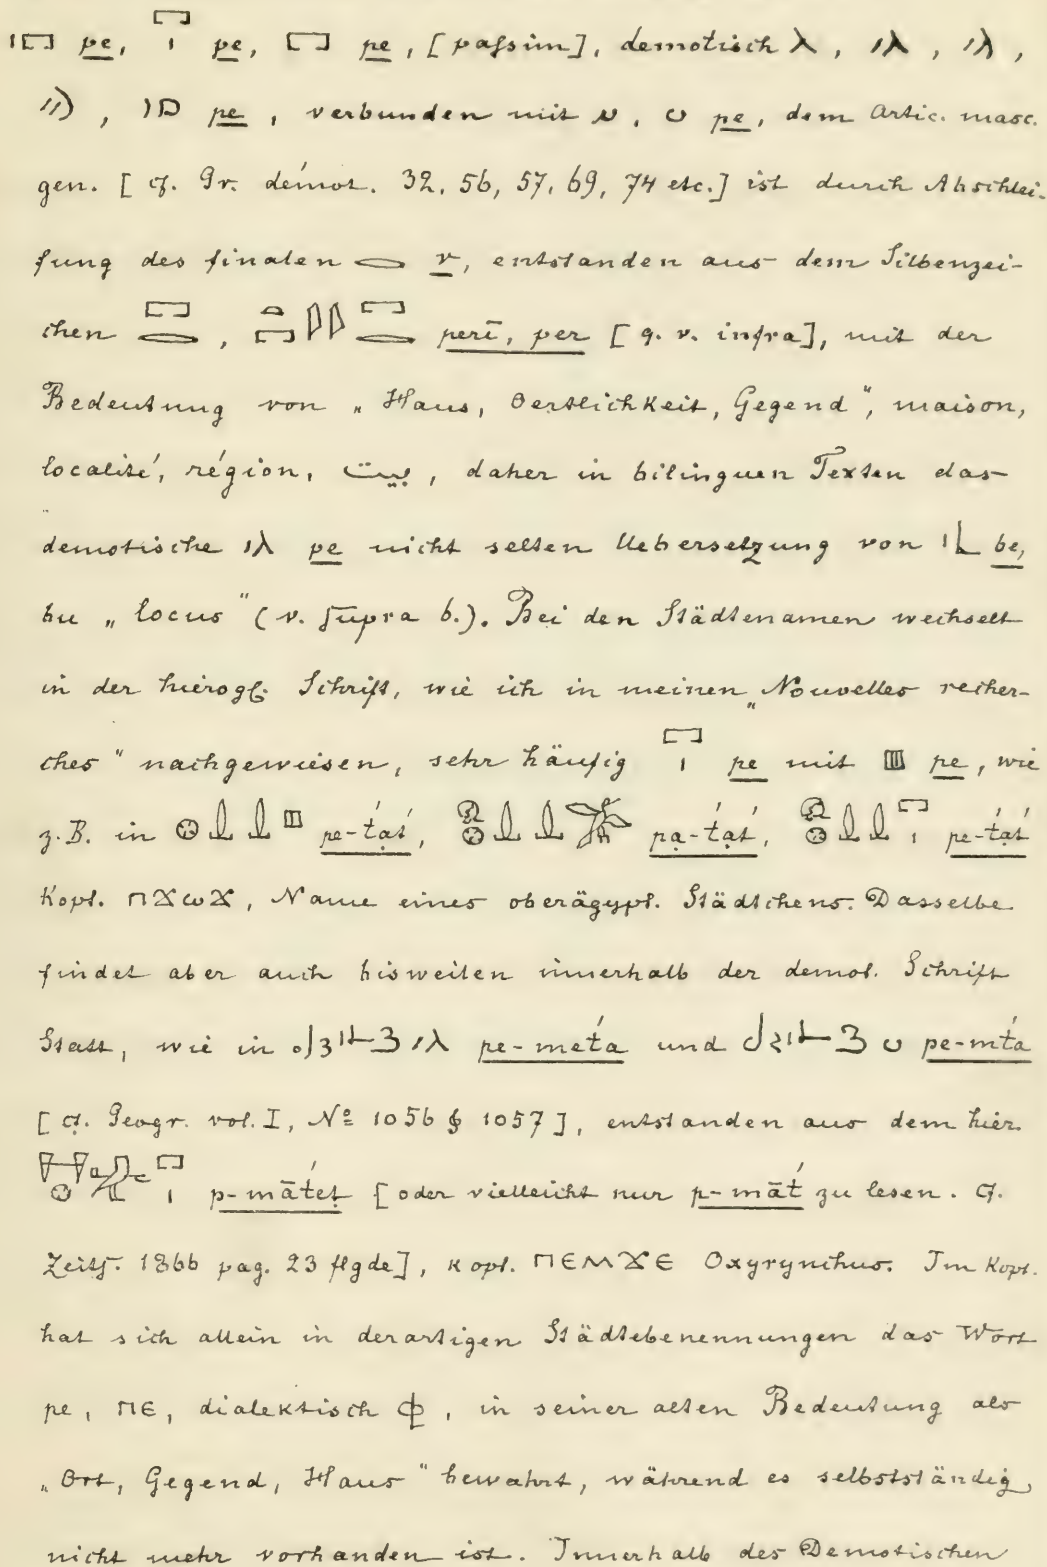 𓉐𓏤 pe, 𓉐𓏤 pe, 𓉐 pe, [passim], demotisch
pe, verbunden mit pe, dem Artic. masc.
gen. [cf. Gr. démot. 32, 56, 57, 69, 74 etc.] ist durch Abschlei-
fung des finalen 𓂋 r, entstanden aus dem Silbenzei-
chen 𓉐𓂋, perī, per [q. v. infra], mit der
Bedeutung von „Haus, Oertlichkeit, Gegend“, maison,
localité, région, بيت, daher in bilinguen Texten das
demotische pe nicht selten Uebersetzung von 𓃀𓏤 be,
bu „locus“ (v. supra b.). Bei den Städtenamen wechselt
in der hierogl. Schrift, wie ich in meinen „Nouvelles recher-
ches“ nachgewiesen, sehr häufig 𓉐𓏤 pe mit 𓊪 pe, wie
z. B. in pe-t́ạt́, pạ-t́ạt́, pe-t́ạt́
Kopt. ⲡϫⲱϫ, Name eines oberägypt. Städtchens. Dasselbe
findet aber auch bisweilen innerhalb der demot. Schrift
Statt, wie in pe-met́a und pe-mt́a
[cf. Geogr. vol. I, Nº 1056 & 1057], entstanden aus dem hier.
p-māt́eṭ [oder vielleicht nur p-māt́ zu lesen. cf.
Zeits. 1866 pag. 23 flgde], Kopt. ⲡⲉⲙϫⲉ Oxyrynchus. Im Kopt.
hat sich allein in derartigen Städtebenennungen das Wort
pe, ⲡⲉ, dialektisch ⲫ, in seiner alten Bedeutung als
„Ort, Gegend, Haus“ bewahrt, während es selbstständig
nicht mehr vorhanden ist. Innerhalb des Demotischen